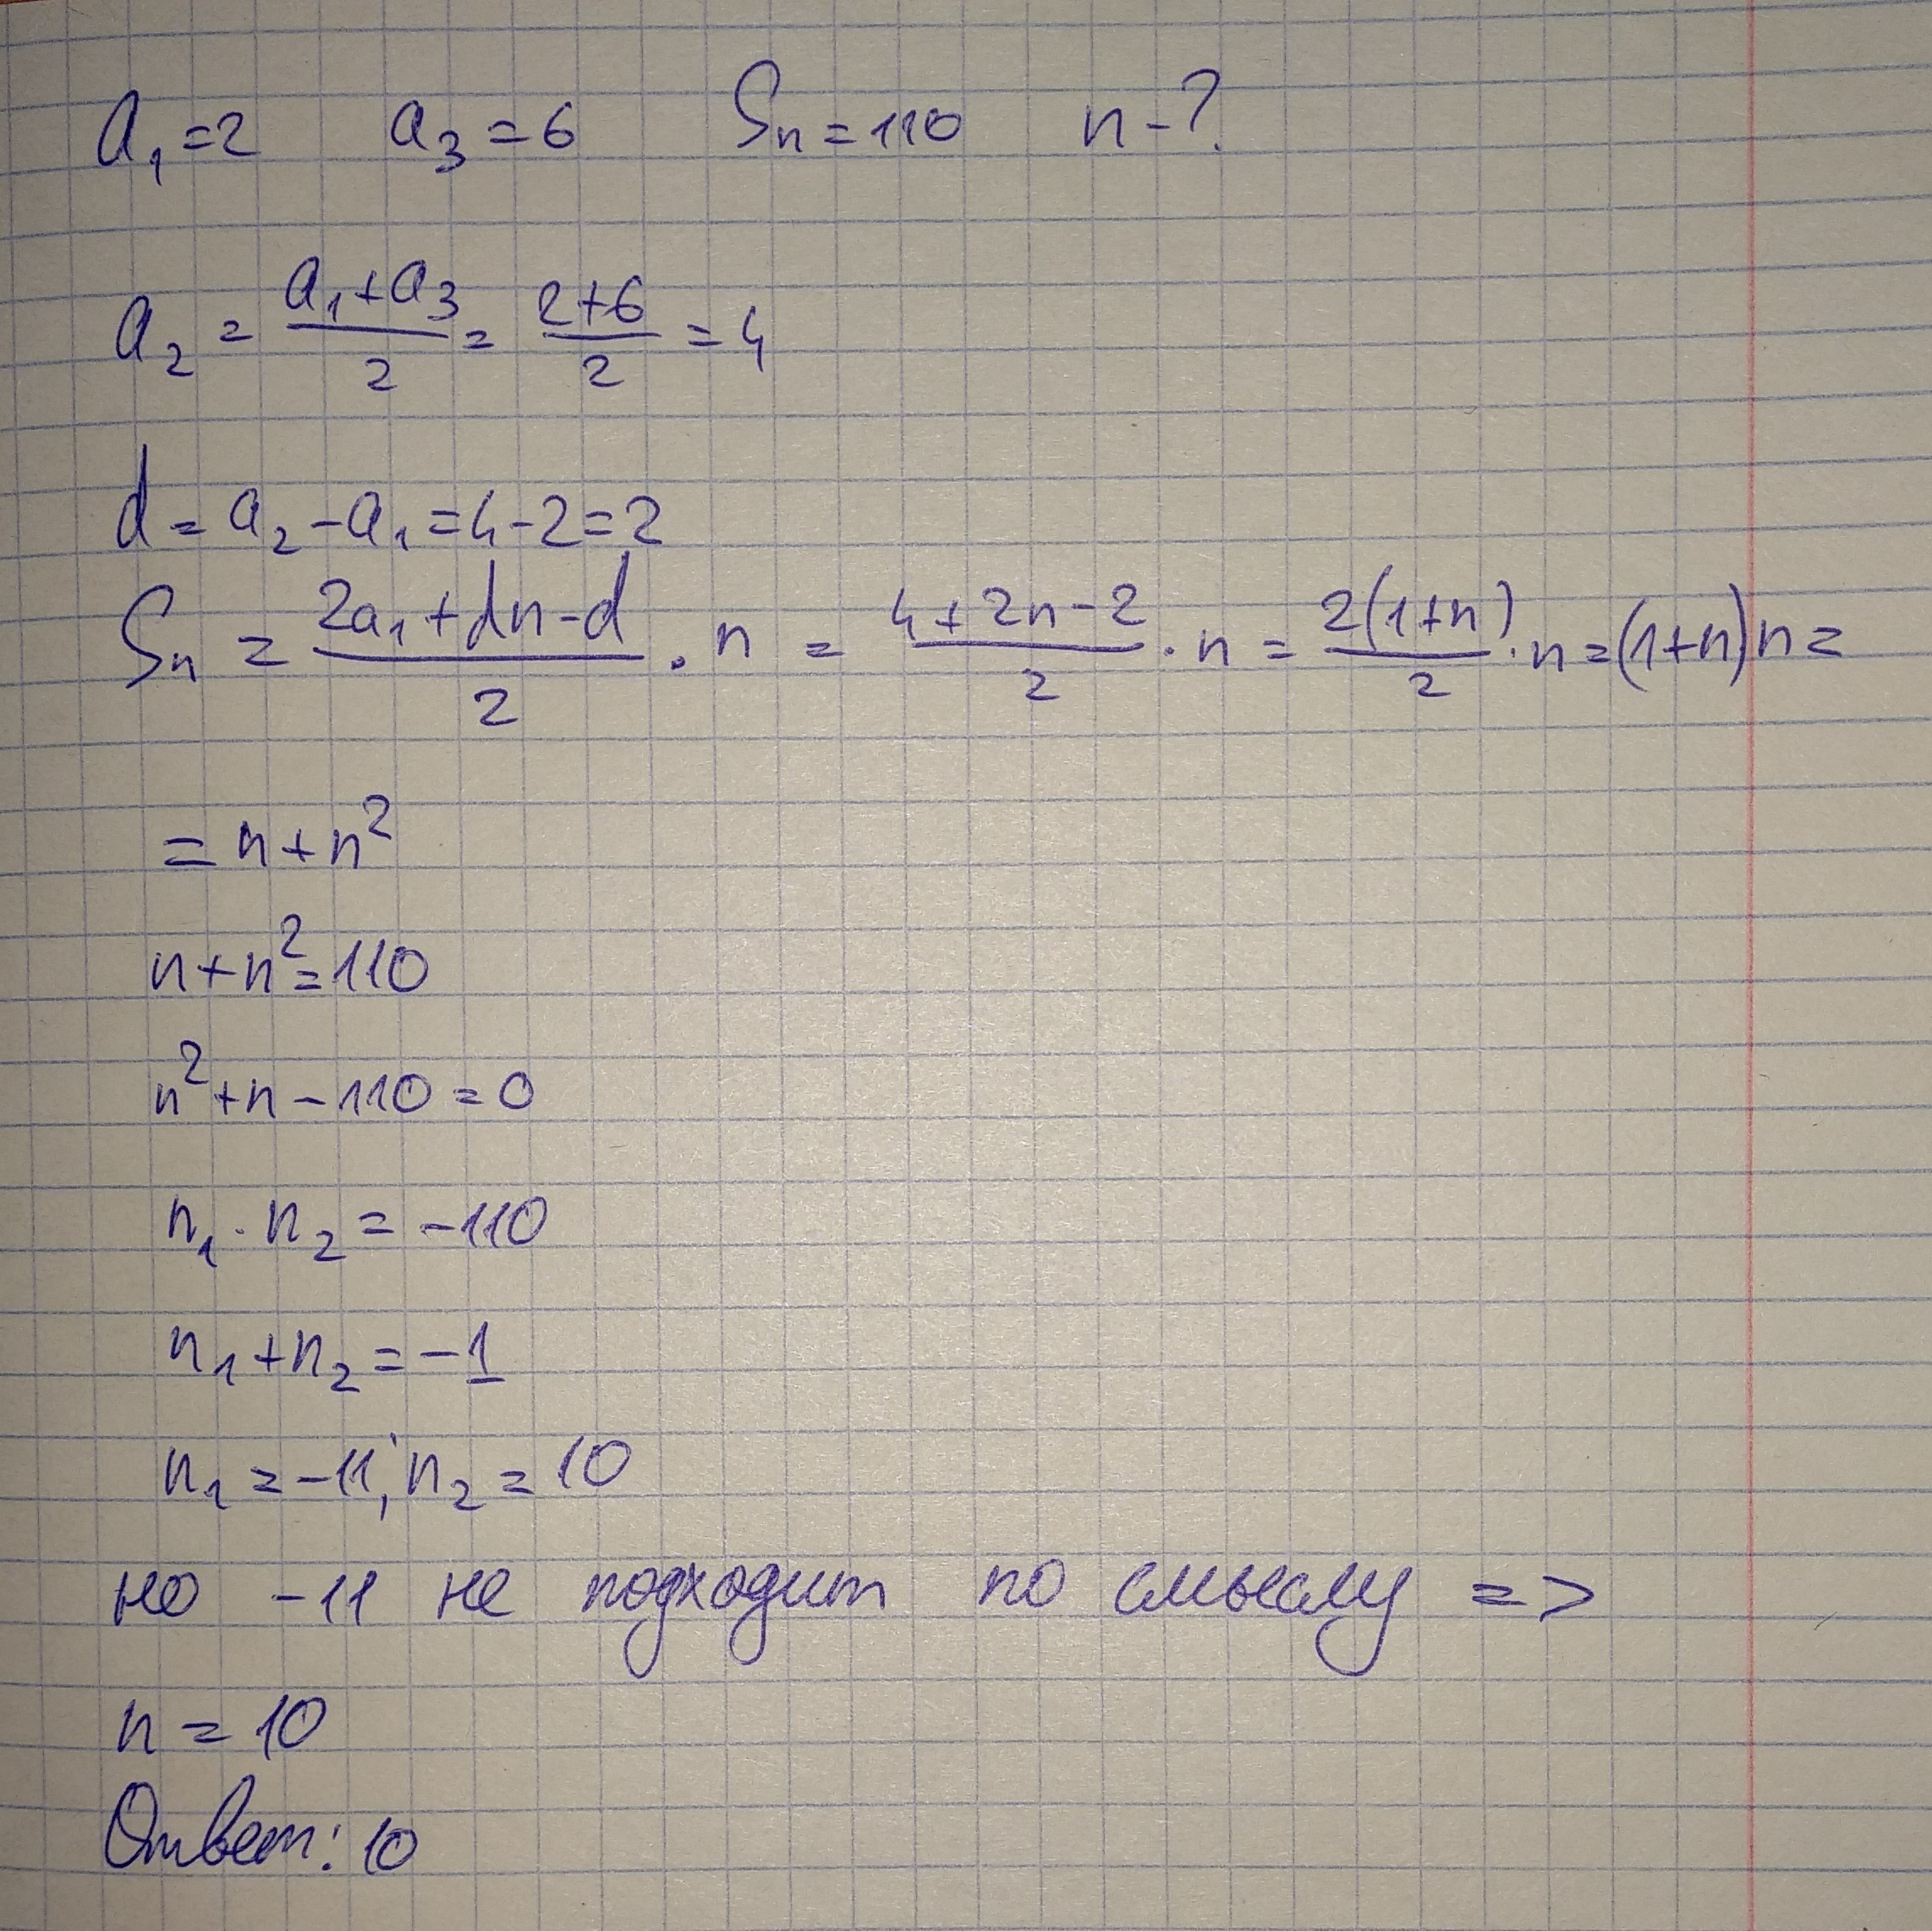 a₁=2 a₃=6 Sₙ=110 n-?
a₂ = (a₁+a₃)/2 = (2+6)/2 = 4
d = a₂-a₁=4-2=2
Sₙ = (2a₁+dn-d)/2 · n = (4+2n-2)/2 · n = 2(1+n)/2 · n = (1+n)n =
= n+n²
n+n²=110
n²+n-110=0
n₁·n₂ = -110
n₁+n₂=-1
n₁=-11; n₂=10
но -11 не подходит по смыслу =>
n = 10
Ответ: 10